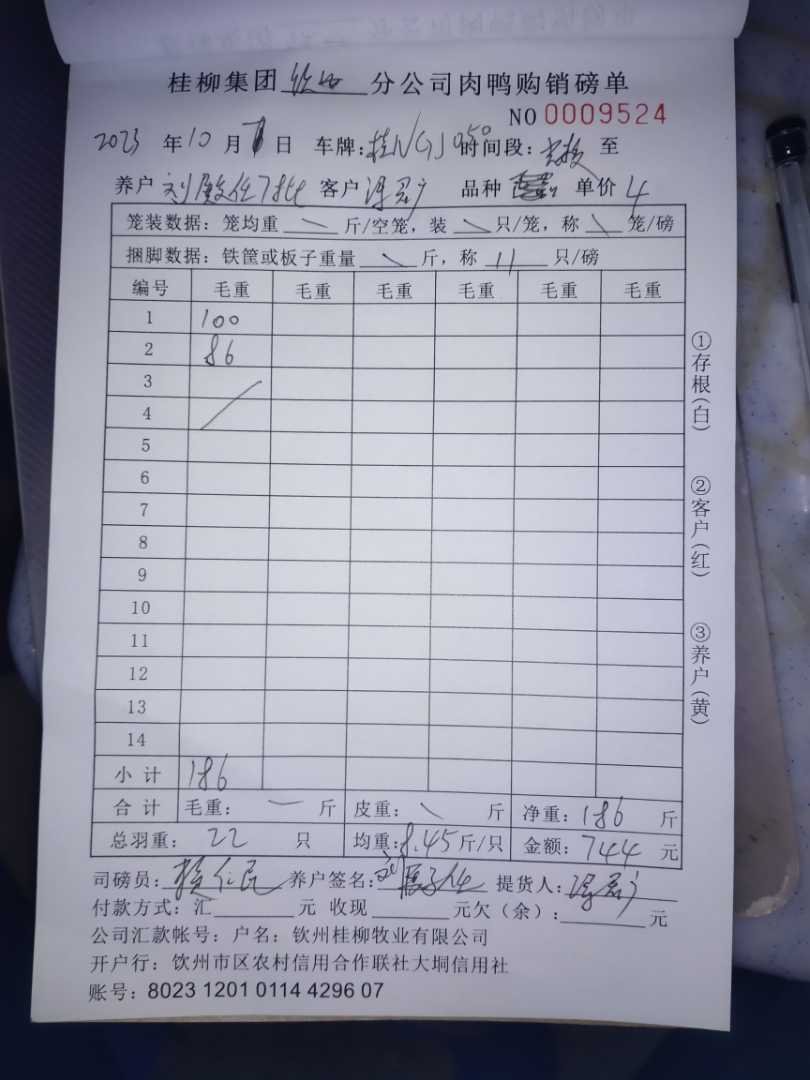 桂柳集团 分公司肉鸭购销磅单
NO 0009524
2023 年 10 月 日 车牌: 桂N 050 时间段: 至
养户 刘 客户 品种 单价 4
笼装数据: 笼均重 斤/空笼, 装 只/笼, 称 笼/磅
捆脚数据: 铁筐或板子重量 斤, 称 11 只/磅
编号 毛重 毛重 毛重 毛重 毛重 毛重
1 100
2 86
3
4
5
6
7
8
9
10
11
12
13
14
小 计 186
合 计 毛重: 斤 皮重: 斤 净重: 186 斤
总羽重: 22 只 均重: 8.45 斤/只 金额: 744 元
司磅员: 养户签名: 刘 提货人:
付款方式: 汇 元 收现 元欠(余): 元
公司汇款帐号: 户名: 钦州桂柳牧业有限公司
开户行: 钦州市区农村信用合作联社大垌信用社
账号: 8023 1201 0114 4296 07
①存根(白)
②客户(红)
③养户(黄)